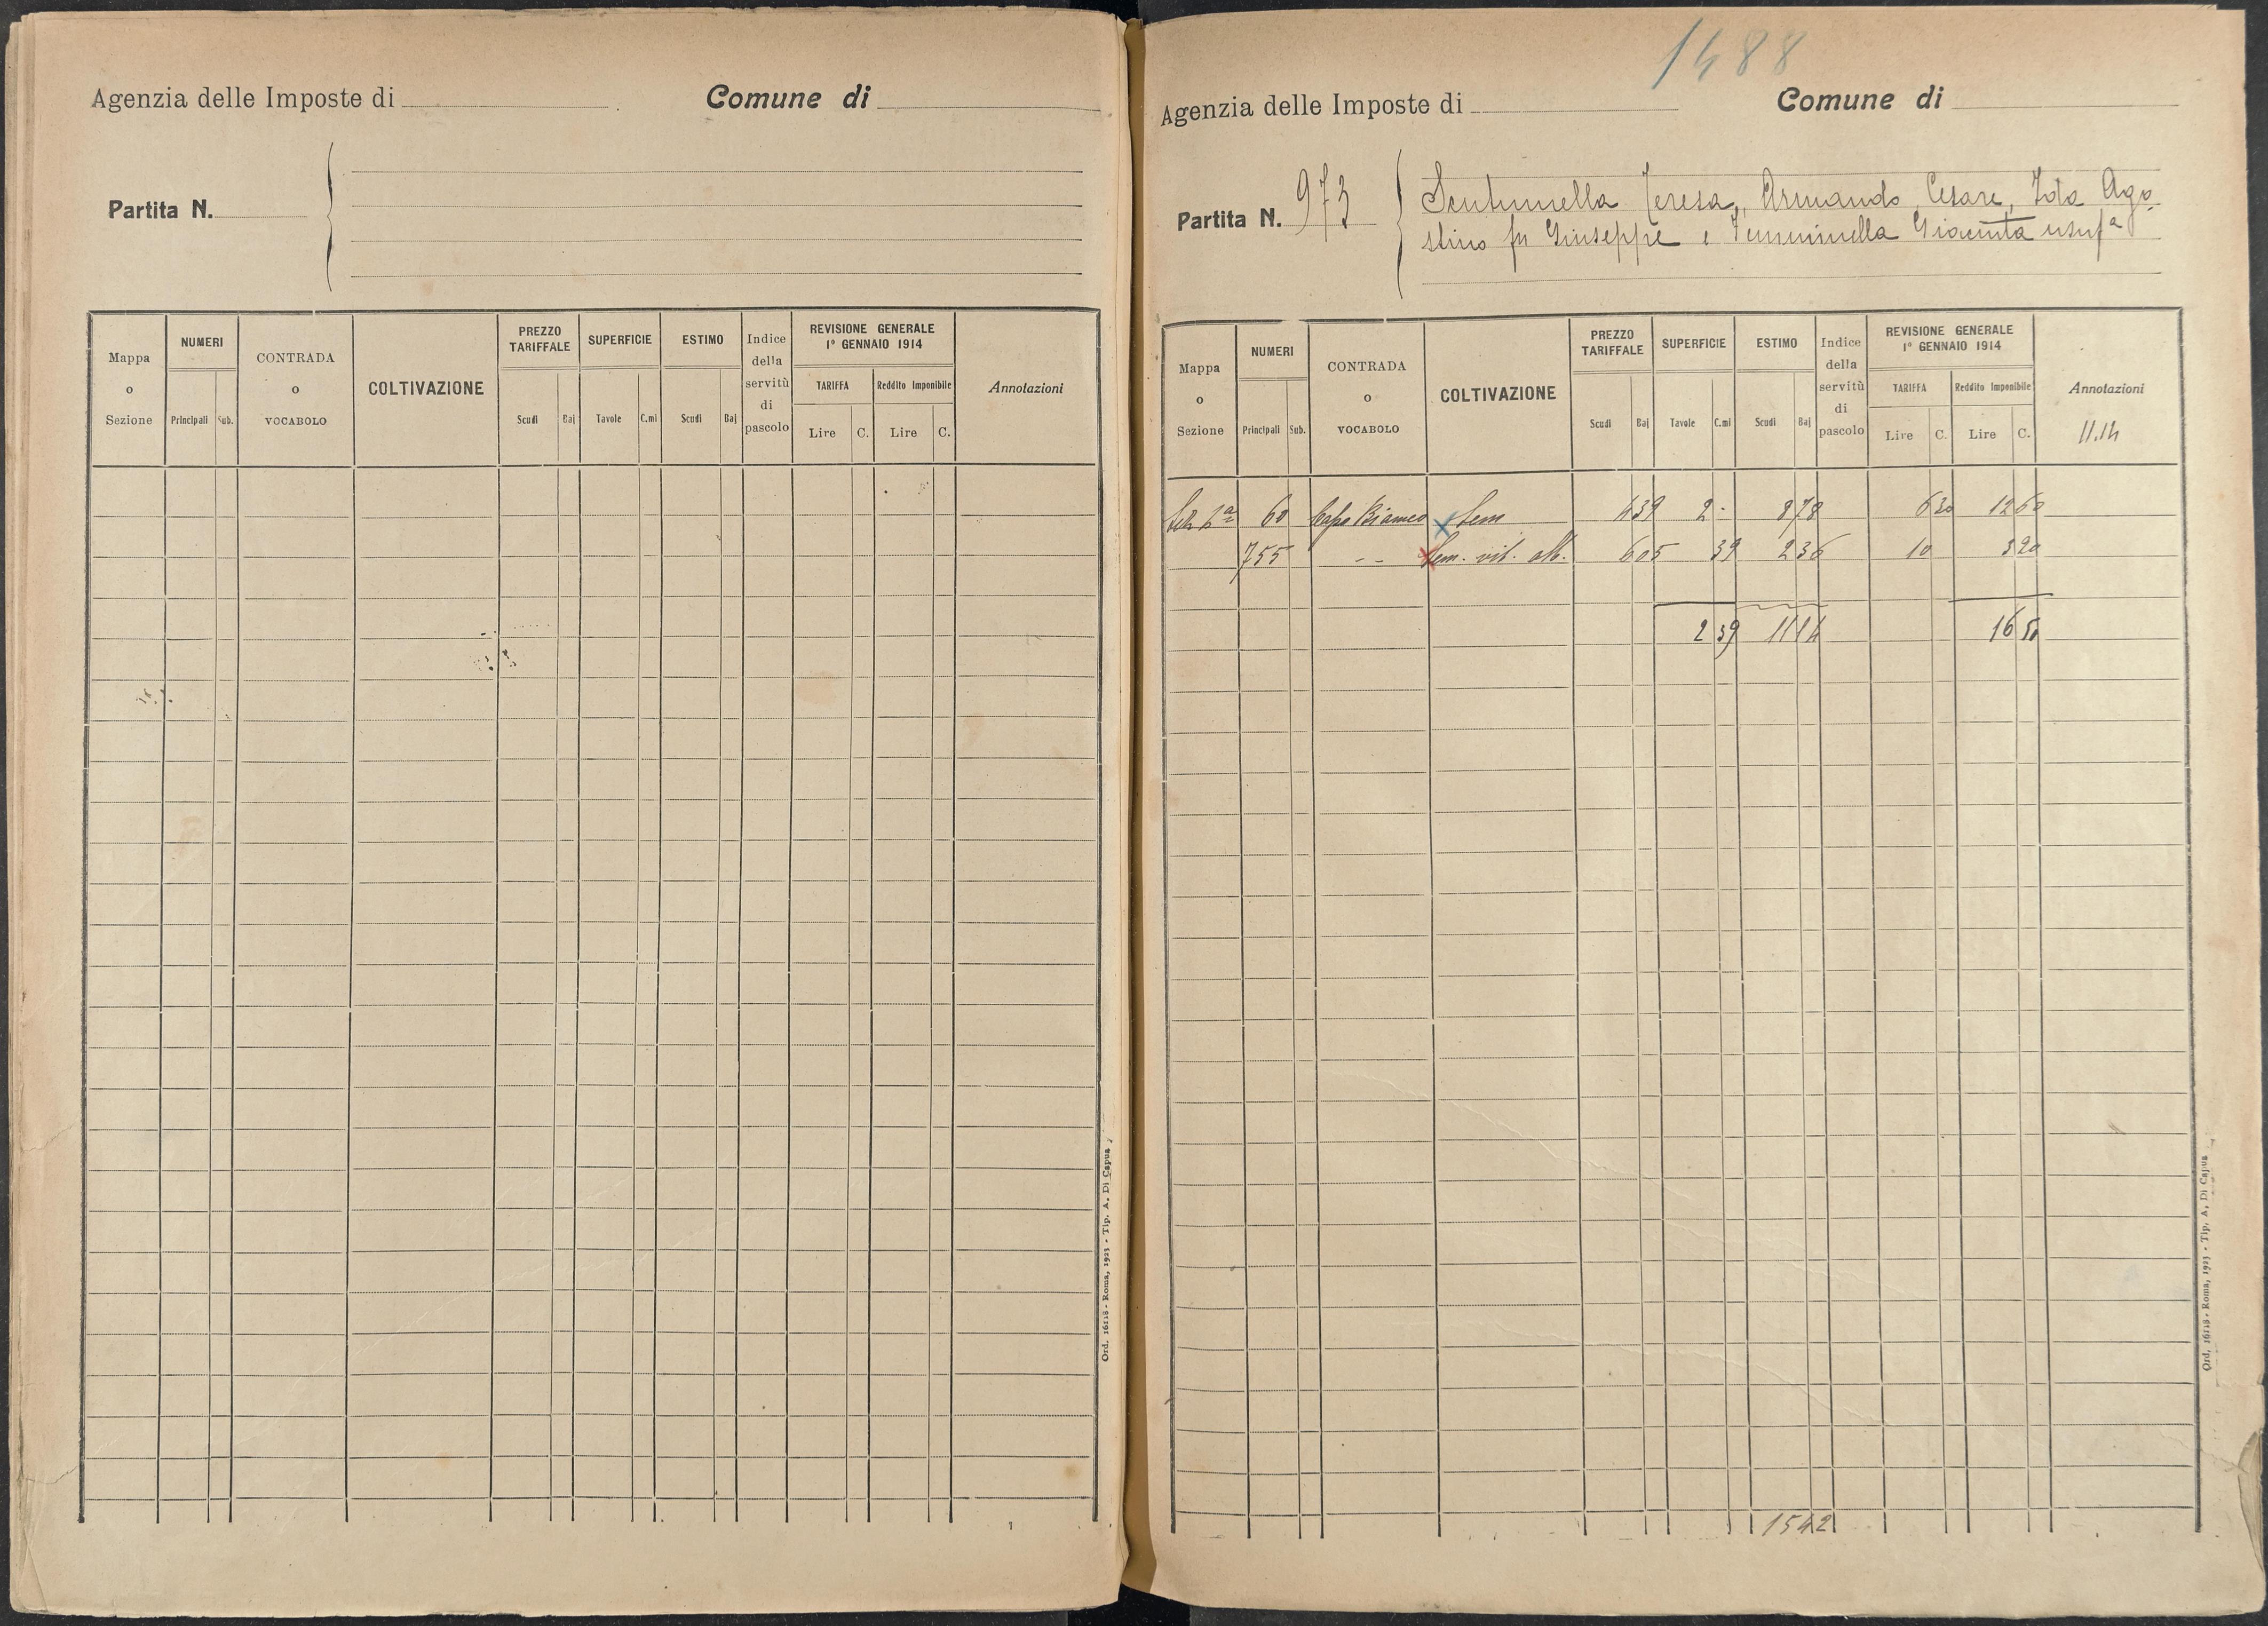 Agenzia delle Imposte di
Comune di
Partita N.
Mappa o Sezione
NUMERI
Principali
Sub.
CONTRADA o VOCABOLO
COLTIVAZIONE
PREZZO TARIFFALE
Scudi
Baj
SUPERFICIE
Tavole
C.mi
ESTIMO
Scudi
Baj
Indice della servitù di pascolo
REVISIONE GENERALE
1º GENNAIO 1914
TARIFFA
Reddito Imponibile
Lire
C.
Lire
C.
Annotazioni
Ord. 16118 - Roma, 1923 - Tip. A. Di Capua
1488
Agenzia delle Imposte di
Comune di
Partita N. 973
Teresa, Armando, Cesare, Ago
stino fu Giuseppe e Femminella Giacinta usufª
Mappa o Sezione
NUMERI
Principali
Sub.
CONTRADA o VOCABOLO
COLTIVAZIONE
PREZZO TARIFFALE
Scudi
Baj
SUPERFICIE
Tavole
C.mi
ESTIMO
Scudi
Baj
Indice della servitù di pascolo
REVISIONE GENERALE
1º GENNAIO 1914
TARIFFA
Reddito Imponibile
Lire
C.
Lire
C.
Annotazioni
11.14
60 Capo Bianco Sem 4 39 2 - 8 78 6 30 12 60
755 - - Sem. vit. alb. 6 05 39 2 36 10 3 90
2 39 11 14 16 50
1542
Ord. 16118 - Roma, 1923 - Tip. A. Di Capua